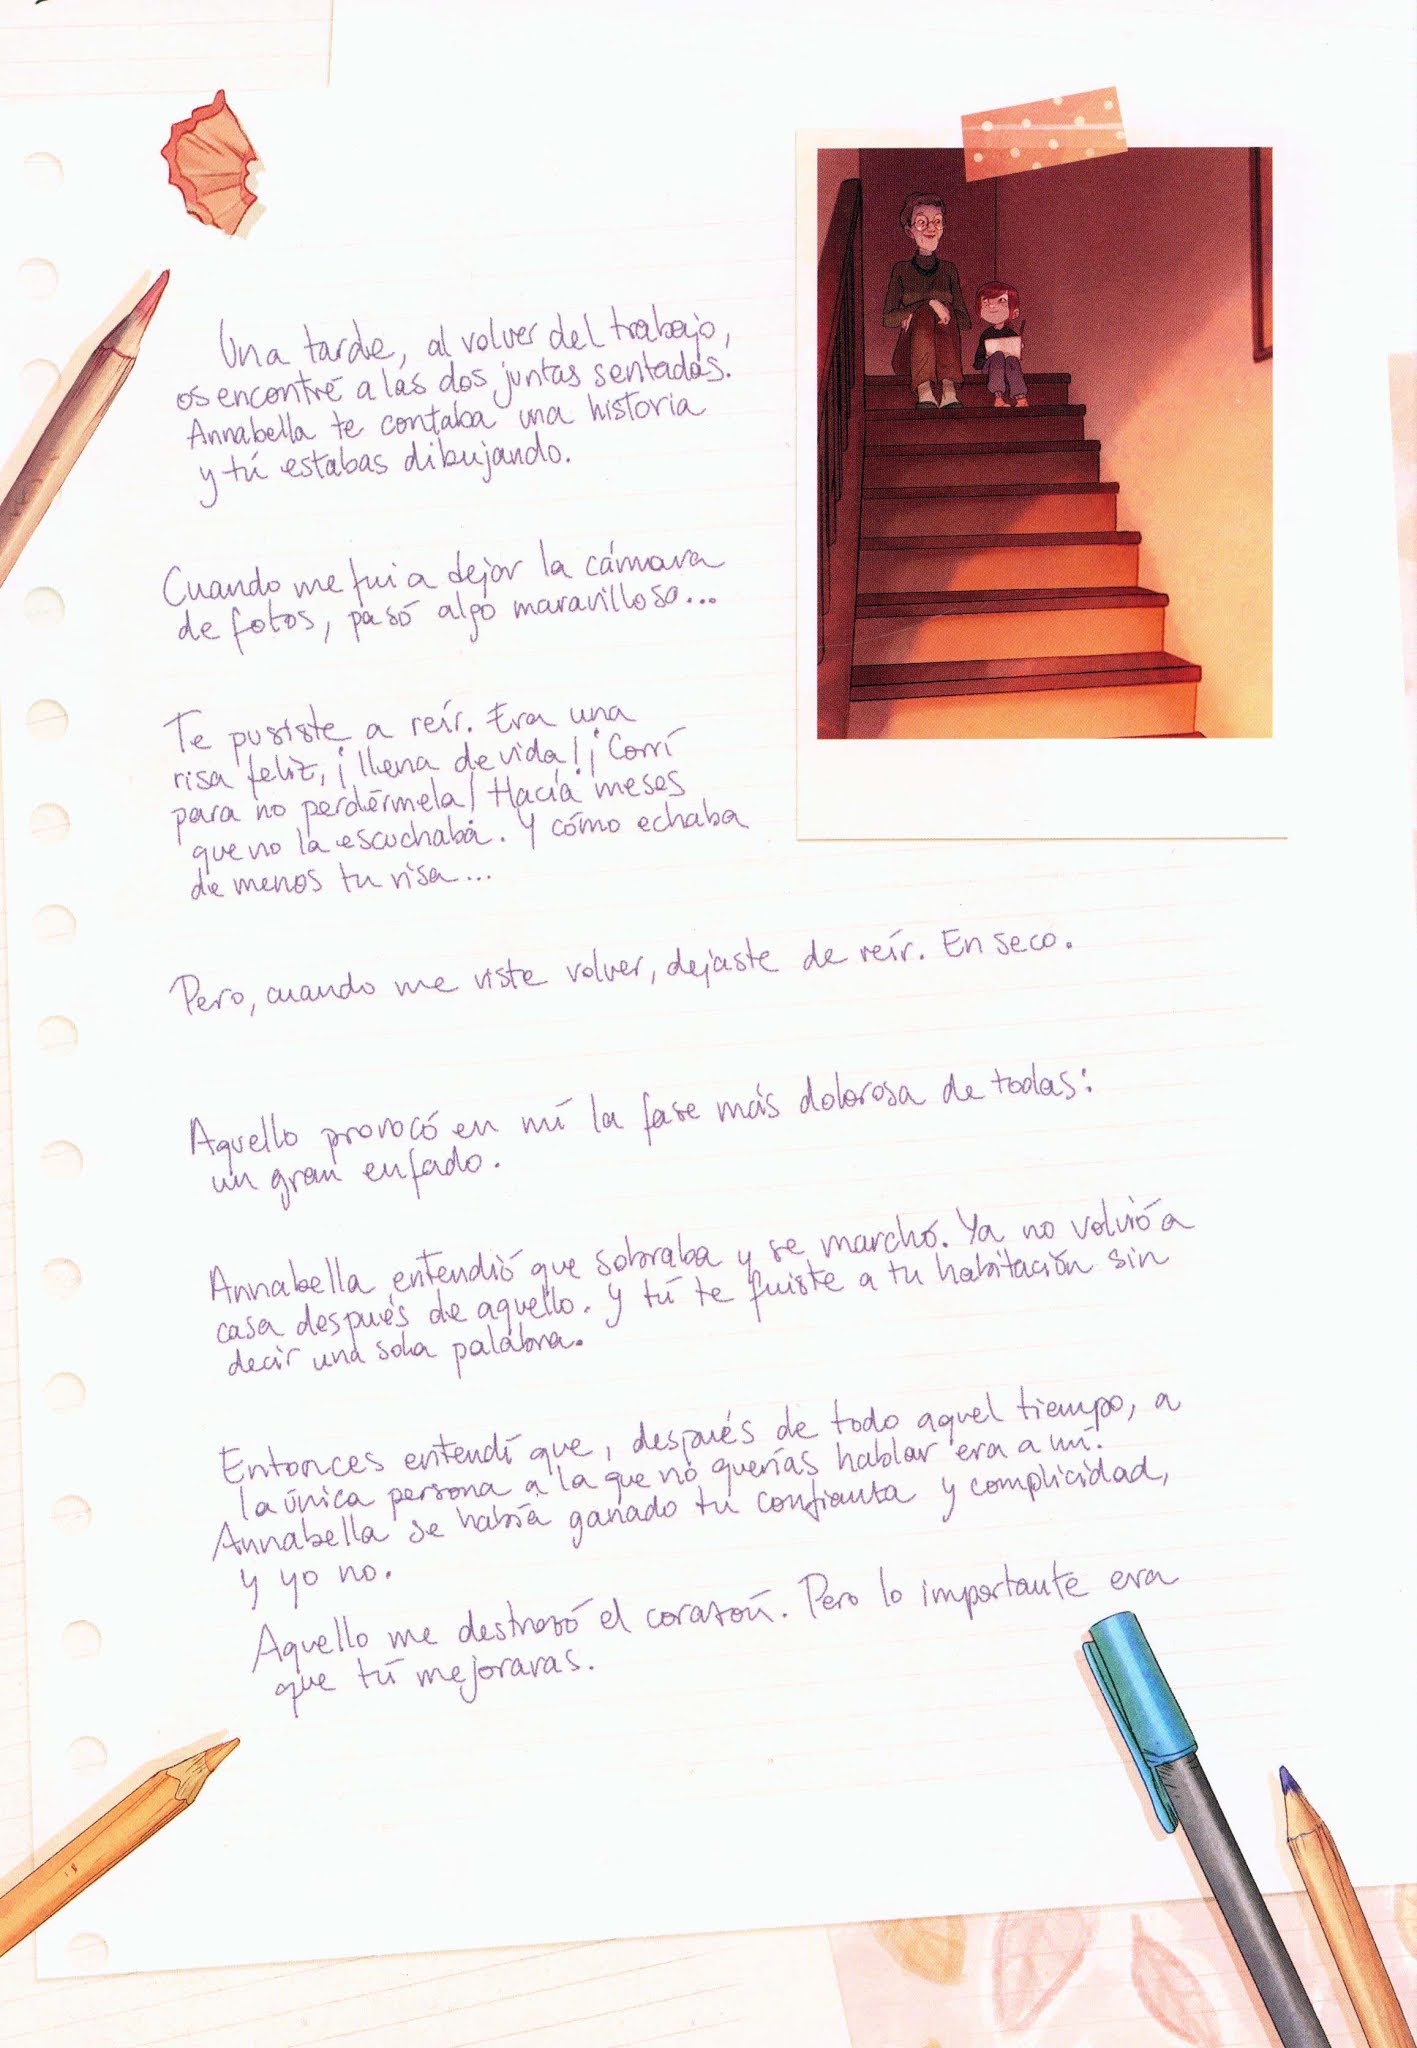 Una tarde, al volver del trabajo,
os encontré a las dos juntas sentadas.
Annabella te contaba una historia
y tú estabas dibujando.
Cuando me fui a dejar la cámara
de fotos, pasó algo maravilloso...
Te pusiste a reír. Era una
risa feliz, ¡llena de vida! ¡Corrí
para no perdérmela! Hacía meses
que no la escuchaba. Y cómo echaba
de menos tu risa...
Pero, cuando me viste volver, dejaste de reír. En seco.
Aquello provocó en mí la fase más dolorosa de todas:
un gran enfado.
Annabella entendió que sobraba y se marchó. Ya no volvió a
casa después de aquello. Y tú te fuiste a tu habitación sin
decir una sola palabra.
Entonces entendí que, después de todo aquel tiempo, a
la única persona a la que no querías hablar era a mí.
Annabella se había ganado tu confianza y complicidad,
y yo no.
Aquello me destrozó el corazón. Pero lo importante era
que tú mejoraras.